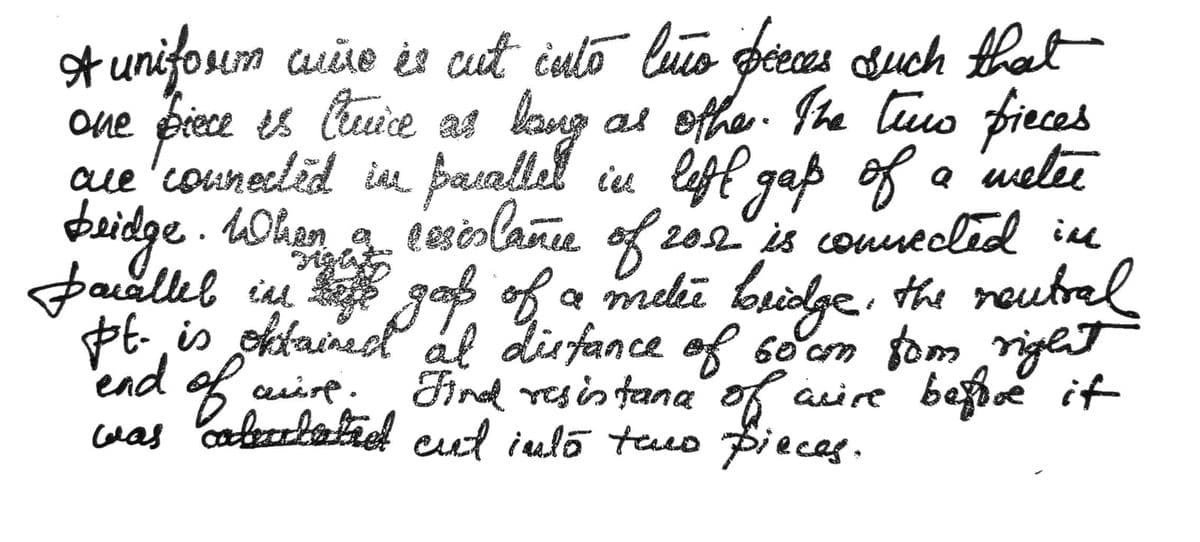 A uniform wire is cut into two pieces such that
one piece is twice as long as other. The two pieces
are connected in parallel in left gap of a meter
bridge. When a resistance of 20Ω is connected in
right
parallel in left gap of a meter bridge, the neutral
pt. is obtained at distance of 60 cm from right
end of wire. Find resistance of wire before it
was cut into two pieces.